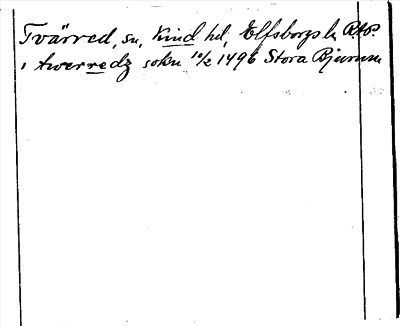 Tvärred, sn, Kind hd, Elfsborgs l.
i twerredz sokn 10/2 1496 Stora Bjurum